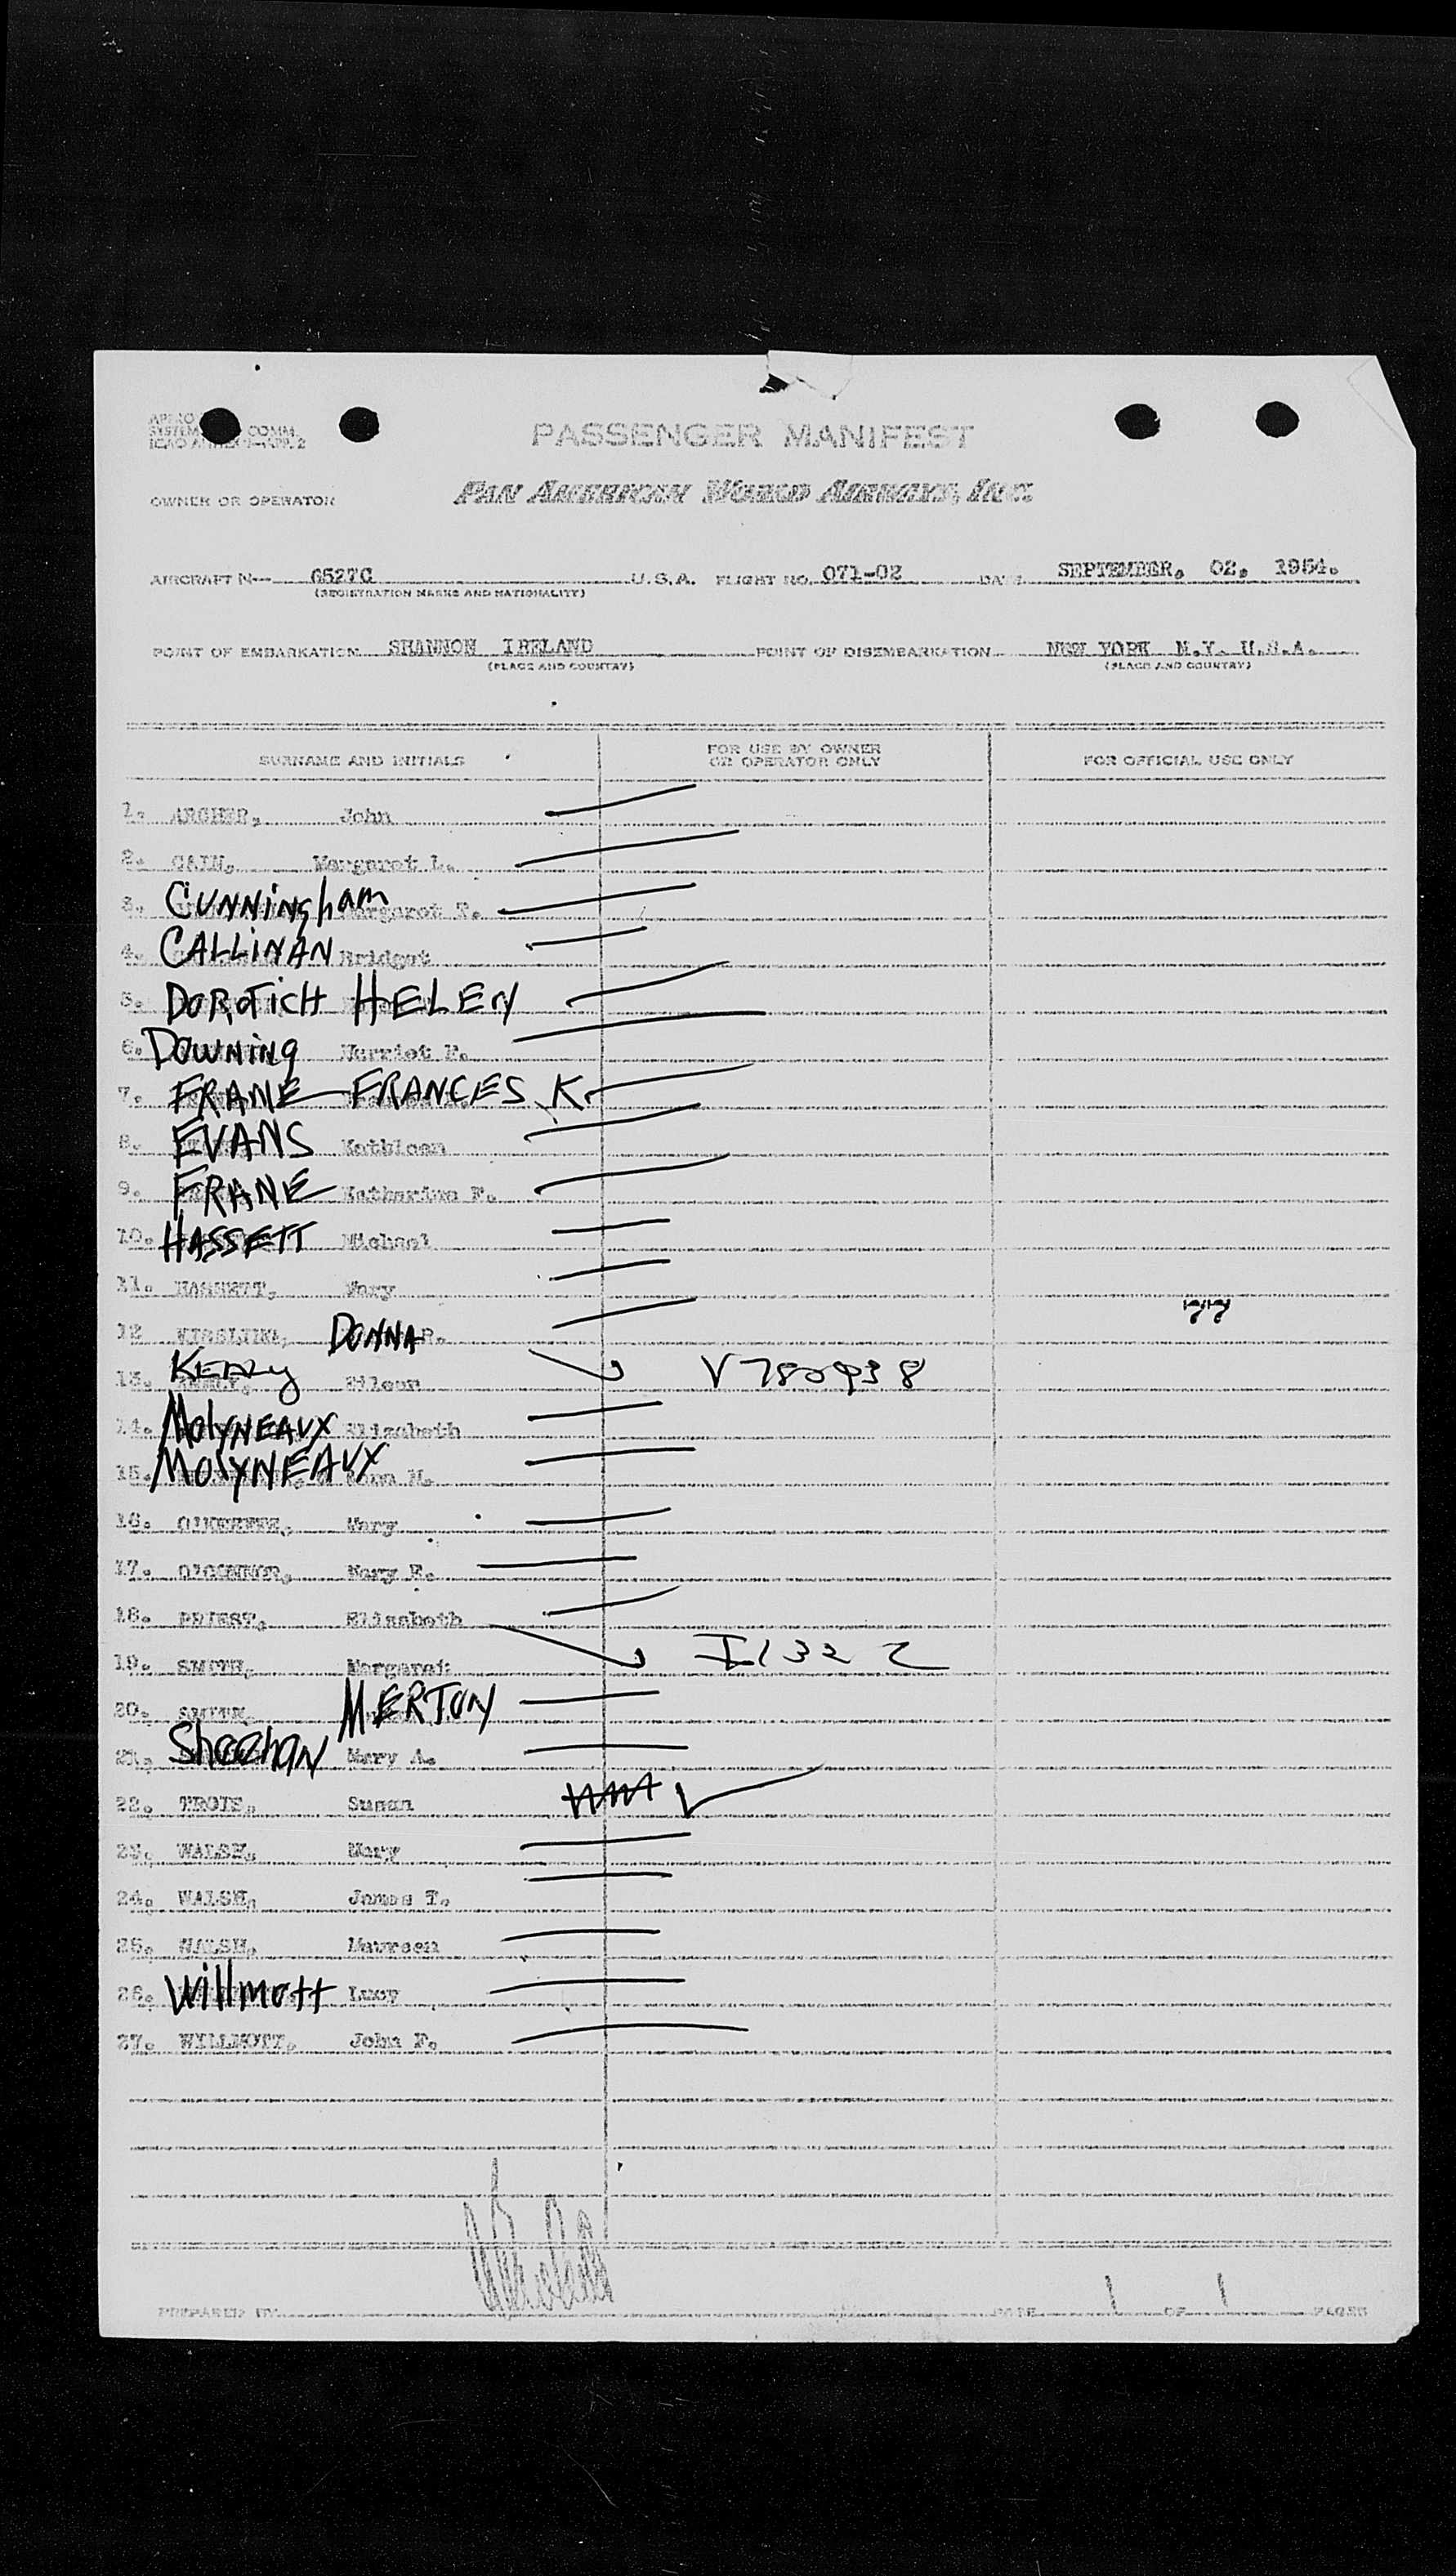 PASSENGER MANIFEST
OWNER OR OPERATOR PAN AMERICAN WORLD AIRWAYS, INC.
AIRCRAFT N 6527C U.S.A. FLIGHT NO. 071-02 DATE SEPTEMBER, 02, 1954.
(REGISTRATION MARKS AND NATIONALITY)
POINT OF EMBARKATION SHANNON IRELAND POINT OF DISEMBARKATION NEW YORK N.Y. U.S.A.
(PLACE AND COUNTRY) (PLACE AND COUNTRY)
SURNAME AND INITIALS FOR USE BY OWNER OR OPERATOR ONLY FOR OFFICIAL USE ONLY
1. ARCHER, John
2. CAIN, Margaret L.
3. Cunningham Margaret T.
4. CALLINAN Bridget
5. DOROTICH HELEN
6. Downing Harriet P.
7. FRANE FRANCES K.
8. EVANS Kathleen
9. FRANE Katharine F.
10. HASSETT Michael
11. HASSETT, Mary
77
12 DONNA
13. Keary V780938
14. MolyNEAUX Elizabeth
15. MOlYNEAUX
16. O'KEEFFE, Mary
17. O'CONNOR, Mary E.
18. PRIEST, Elizabeth
19. SMITH, Margaret I1322
20. SMITH, MERTON
21. Sheehan Mary A.
22. Susan
23. WALSH, Mary
24. WALSH, James T.
25. WALSH, Maureen
26. Willmott Lucy
27. WILLMOTT, John F.
PREPARED BY PAGE 1 OF 1 PAGES